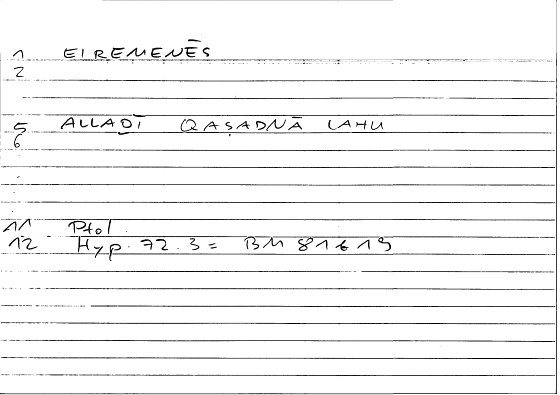 1 EIREMENĒS
2
5 ALLAḎĪ QAṢADNĀ LAHU
6
11 Ptol.
12 Hyp. 72.3 = BM 81619